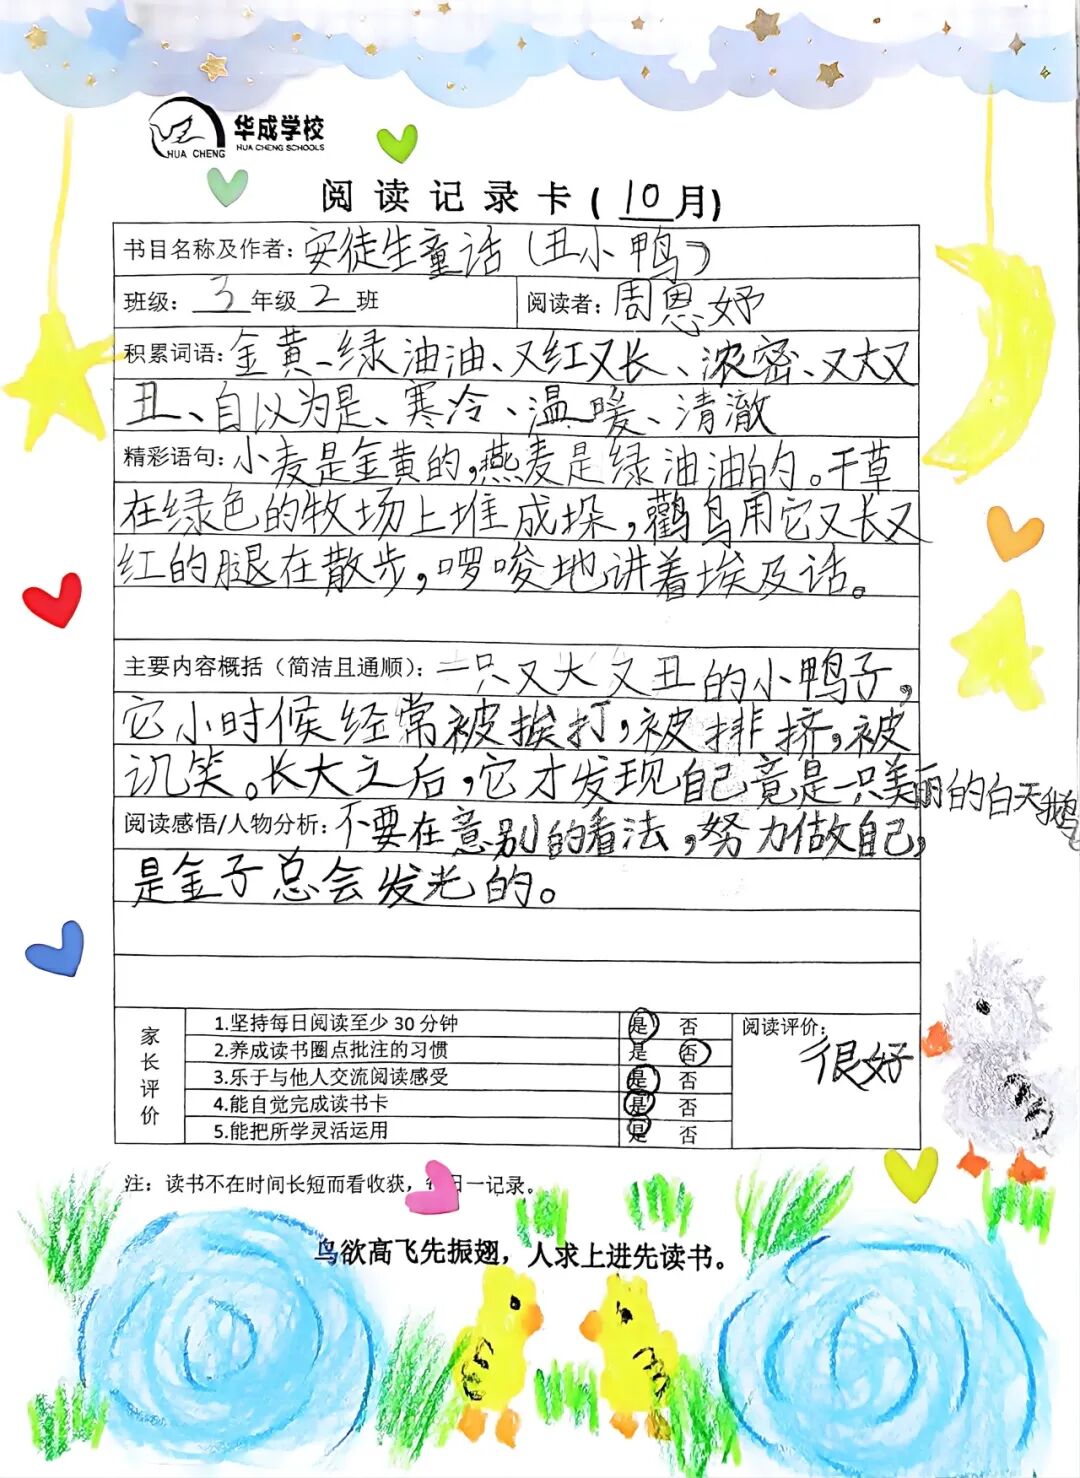 华成学校
HUA CHENG SCHOOLS
HUA CHENG
阅读记录卡(10月)
书目名称及作者:安徒生童话(丑小鸭)
班级:3年级2班 阅读者:周恩妤
积累词语:金黄、绿油油、又红又长、浓密、又大又
丑、自以为是、寒冷、温暖、清澈
精彩语句:小麦是金黄的,燕麦是绿油油的。干草
在绿色的牧场上堆成垛,鹳鸟用它又长又
红的腿在散步,啰唆地讲着埃及话。
主要内容概括(简洁且通顺):一只又大又丑的小鸭子,
它小时候经常被挨打,被排挤,被
讥笑。长大之后,它才发现自己竟是一只美丽的白天鹅。
阅读感悟/人物分析:不要在意别的看法,努力做自己,
是金子总会发光的。
家长评价
1.坚持每日阅读至少30分钟 是 否
2.养成读书圈点批注的习惯 是 否
3.乐于与他人交流阅读感受 是 否
4.能自觉完成读书卡 是 否
5.能把所学灵活运用 是 否
阅读评价:
很好
注:读书不在时间长短而看收获,每日一记录。
鸟欲高飞先振翅,人求上进先读书。